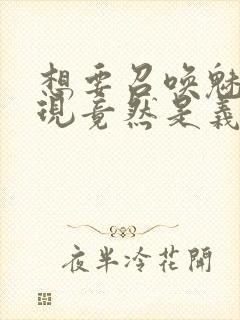 想要召喚魅
現竟然是義
夜半冷花開